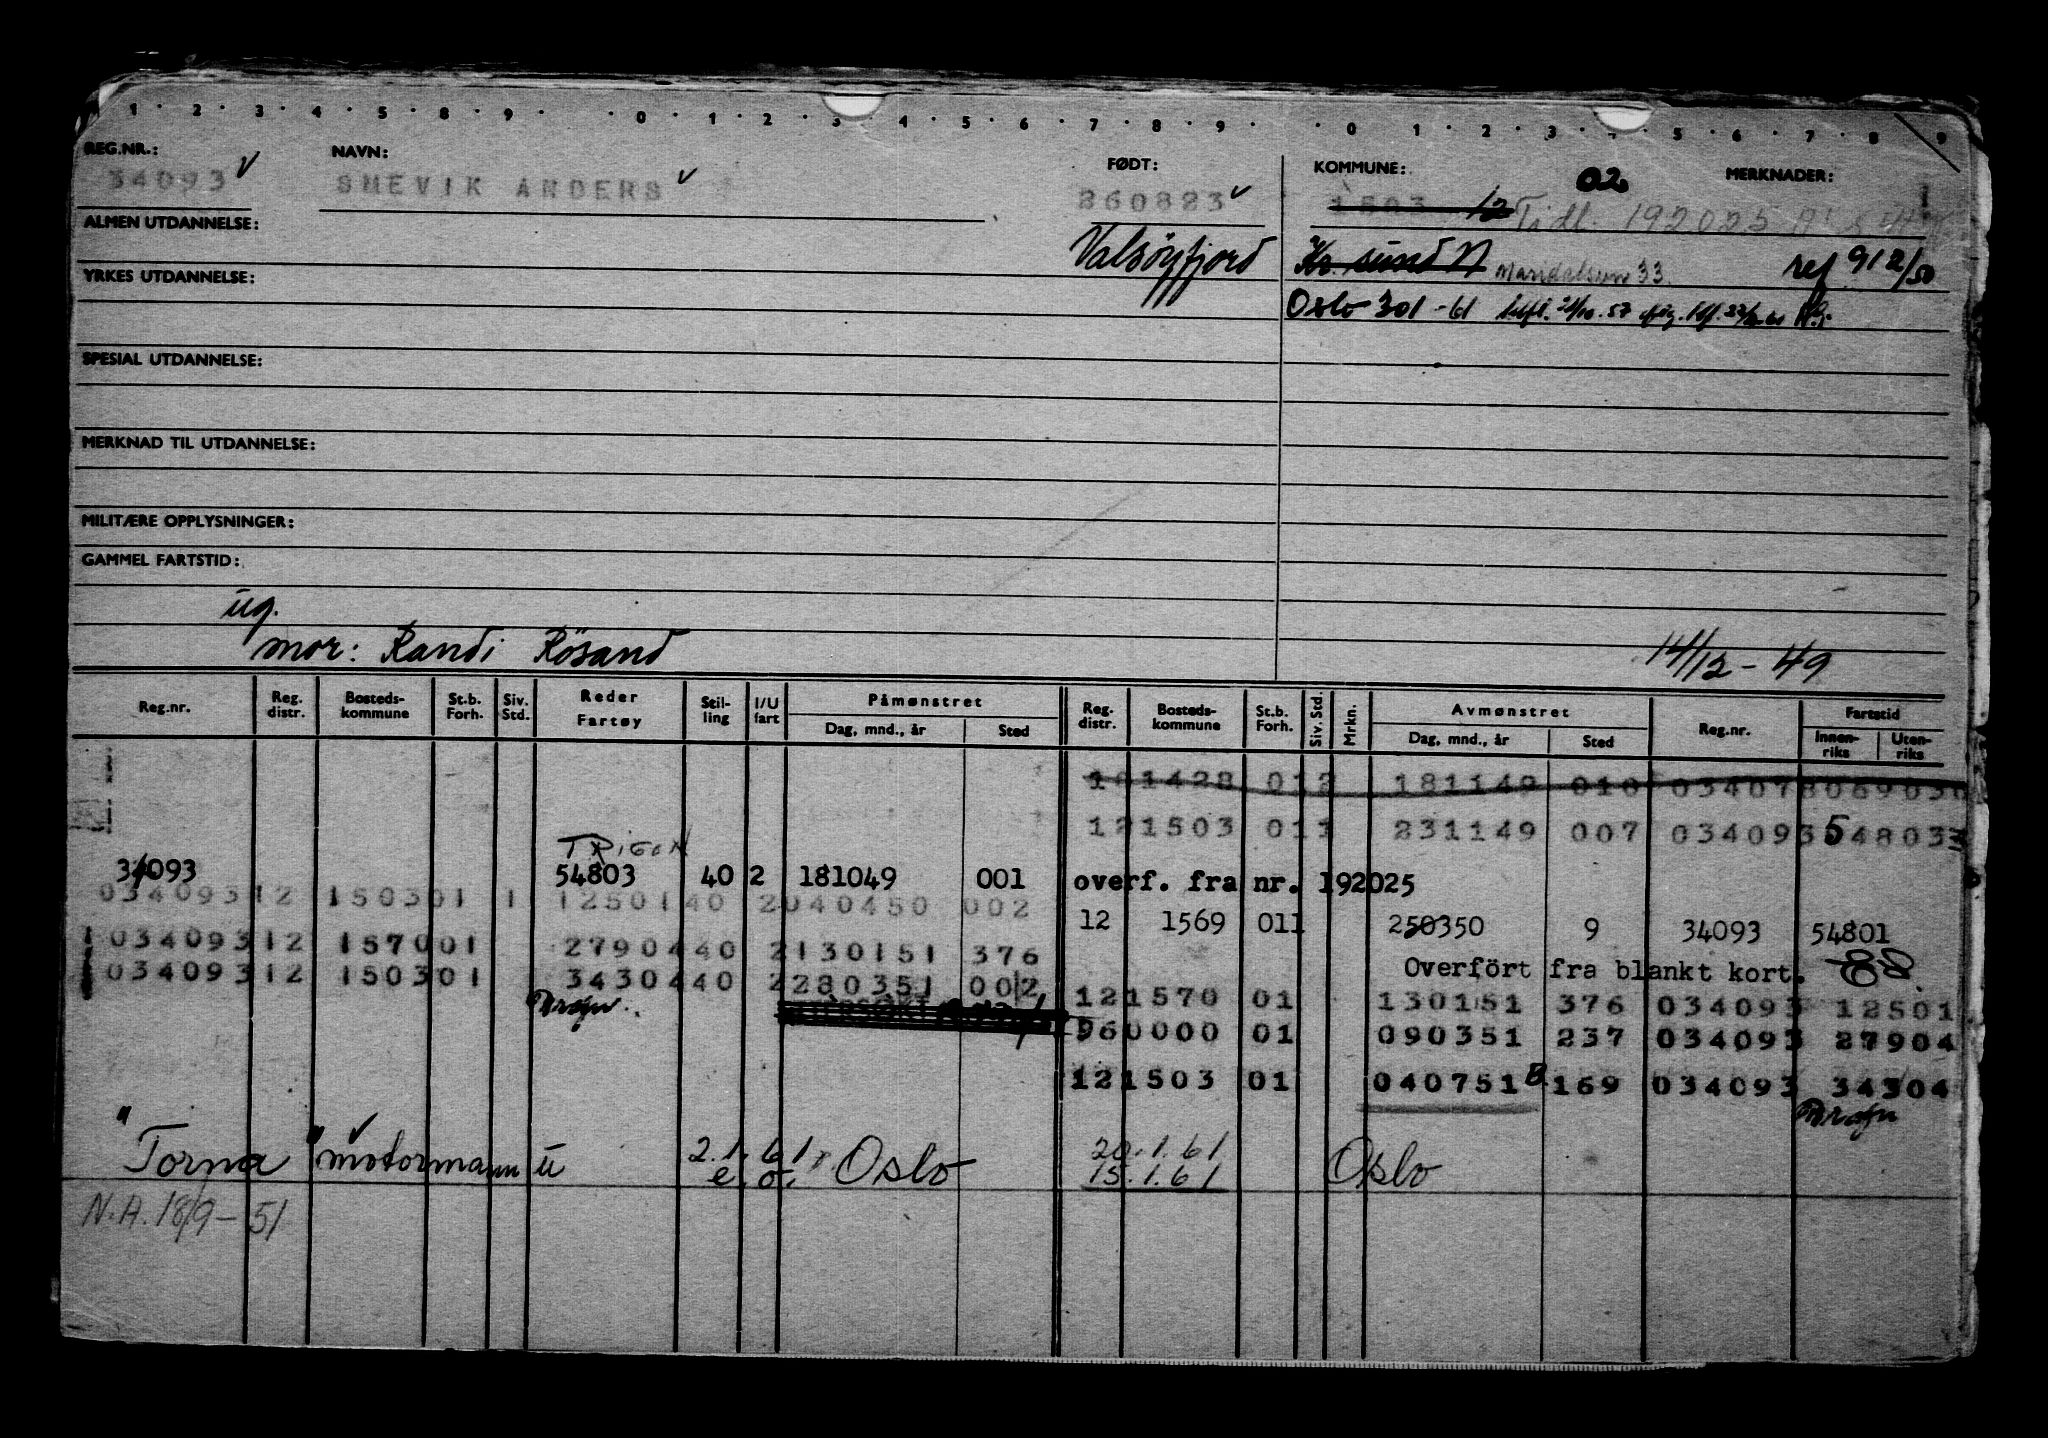 1 · 2 · 3 · 4 · 5 · 8 · 9 · · 0 · 1 · 2 · 3 · 4 · 5 · 6 · 7 · 8 · 9 · · 0 · 1 · 2 · 3 · 4 · 5 · 6 · 7 · 8 · 9
REG.NR.: NAVN: FØDT: KOMMUNE: 02 MERKNADER:
34093 SMEVIK ANDERS 260823 1503 12 Tidl. 192025
ALMEN UTDANNELSE: Valsöyfjord Kr. sund N ref 912/50
YRKES UTDANNELSE: Oslo 301 - 61
SPESIAL UTDANNELSE:
MERKNAD TIL UTDANNELSE:
MILITÆRE OPPLYSNINGER:
GAMMEL FARTSTID:
ug.
mor: Randi Rösand 14/12 - 49
Reg.nr. Reg. distr. Bosteds-kommune St.b. Forh. Siv. Std. Reder Fartøy Stil-ling I/U fart Påmønstret Dag, mnd., år Sted Reg. distr. Bosteds-kommune St.b. Forh. Siv. Std. Mrkn. Avmønstret Dag, mnd., år Sted Reg.nr. Fartstid Innen-riks Uten-riks
101428 012 181149 010 034078069030
121503 011 231149 007 034093548033
TRIGON
34093 54803 40 2 181049 001 overf. fra nr. 192025
03409312 150301 1 1250140 2040450 002
12 1569 011 250350 9 34093 54801
03409312 157001 2790440 2130151 376
Overført fra blankt kort.
03409312 150301 3430440 2280351 002
121570 01 130151 376 034093 12501
960000 01 090351 237 034093 27904
121503 01 040751 B 169 034093 34304
"Torna" motormann u 2.1.61 Oslo 20.1.61 Oslo
e.o. 15.1.61
N.A. 18/9 - 51